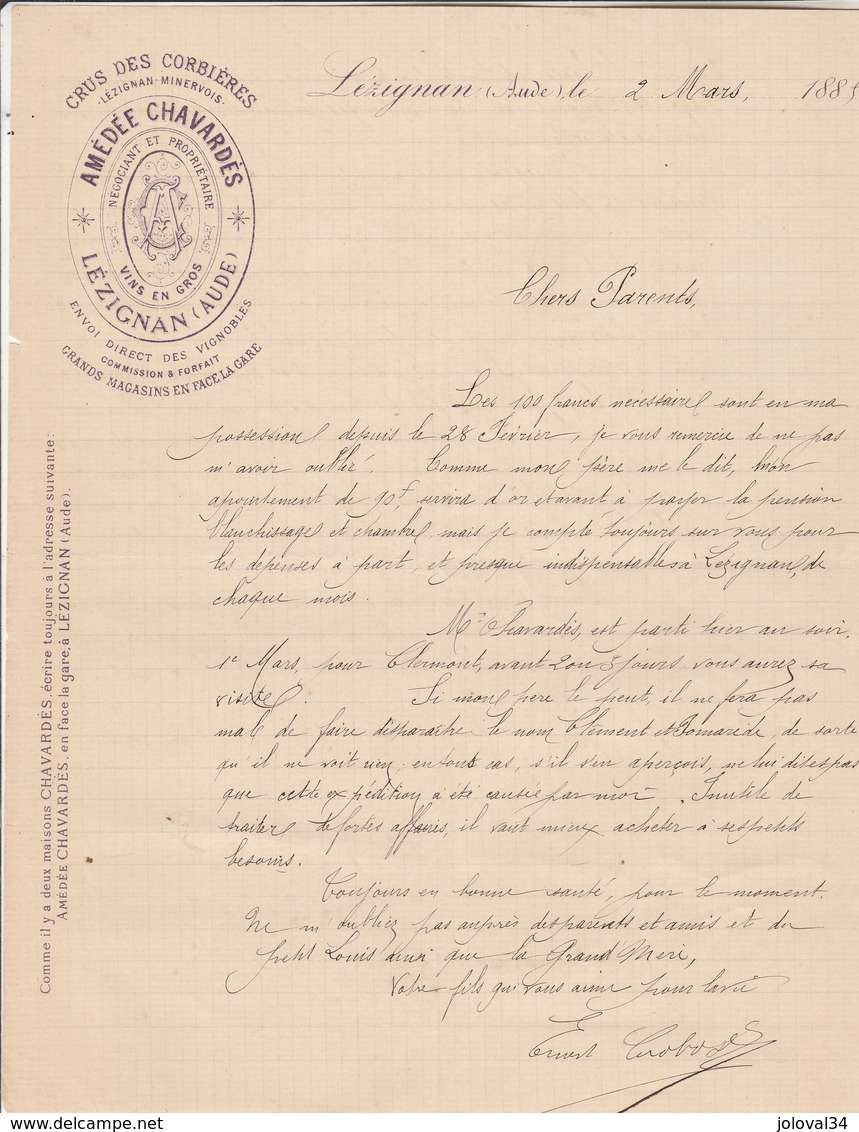 CRUS DES CORBIÈRES
-LÉZIGNAN-MINERVOIS-
AMÉDÉE CHAVARDÈS
NÉGOCIANT ET PROPRIÉTAIRE
VINS EN GROS
LÉZIGNAN (AUDE)
ENVOI DIRECT DES VIGNOBLES
COMMISSION & FORFAIT
GRANDS MAGASINS EN FACE LA GARE
Lézignan (Aude), le 2 Mars, 188
Chers Parents,
Les 100 francs nécessaires sont en ma
possession depuis le 28 Février, je vous remercie de ne pas
m'avoir oublié. Comme mon père me le dit, mon
apointement de 90f, servira d'or et avant à payer la pension
blanchissage et chambre, mais je compte toujours sur vous pour
les dépenses à part, et presque indispensables à Lézignan, de
chaque mois.
Mr Chavardès, est parti hier au soir,
1e Mars, pour Clermont, avant 2 ou 3 jours vous aurez sa
visite. Si mon père le peut, il ne fera pas
mal de faire disparaître le nom Clément et Pomarède, de sorte
qu'il ne voit rien; en tout cas, s'il s'en aperçois, ne lui dites pas
que cette expédition a été causée par moi. Inutile de
traiter de fortes affaires, il vaut mieux acheter à ses petits
besoins.
Toujours en bonne santé, pour le moment.
Ne m'oubliez pas auprès des parents et amis et du
petit Louis ainsi que la Grand'Mère,
Votre fils qui vous aime pour la vie
Ernest
Comme il y a deux maisons CHAVARDÈS, écrire toujours à l'adresse suivante:
AMÉDÉE CHAVARDÈS, en face la gare, à LÉZIGNAN (Aude).
Delcampe.net
joloval34